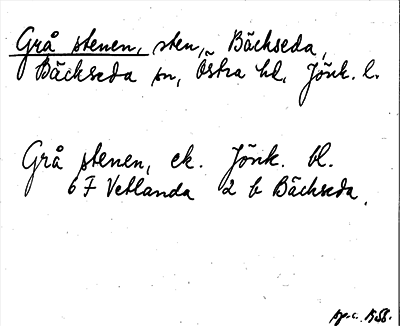 Grå stenen, sten, Bäckseda,
Bäckseda sn, Östra hd, Jönk. l.
Grå stenen, ek. Jönk. bl.
6 F Vetlanda 2 b Bäckseda.